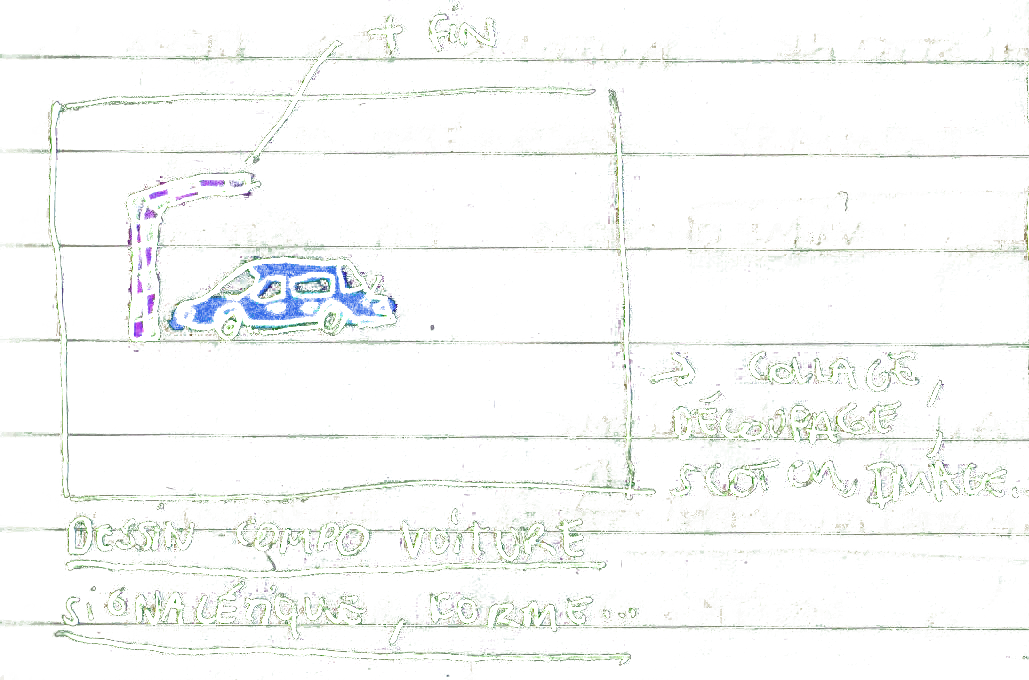 + FIN
→ COLLAGE,
DÉCOUPAGE,
SCOTCH, IMAGE.
DESSIN COMPO VOITURE
SIGNALÉTIQUE, FORME...